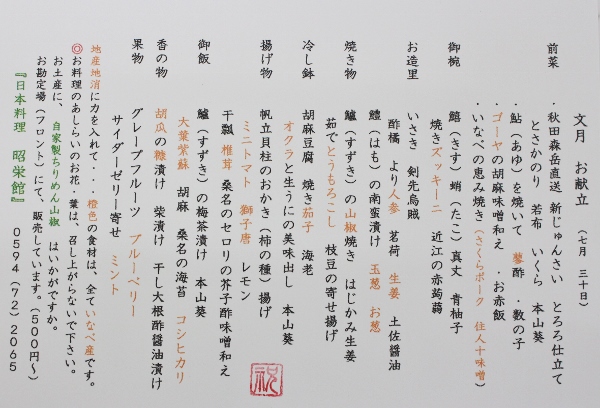 文月　お献立　（七月　三十日）
前菜　・秋田森岳直送　新じゅんさい　とろろ仕立て
とさかのり　若布　いくら　本山葵
・鮎（あゆ）を焼いて　蓼酢　・数の子
・ゴーヤの胡麻味噌和え　・お赤飯
・いなべの恵み焼き（さくらポーク　住人十味噌）
御椀　鱚（きす）蛸（たこ）真丈　青柚子
焼きズッキーニ　近江の赤蒟蒻
お造里　いさき　剣先烏賊
酢橘　より人参　茗荷　生姜　土佐醤油
焼き物　鱧（はも）の南蛮漬け　玉葱　お葱
鱸（すずき）の山椒焼き　はじかみ生姜
茹でとうもろこし　枝豆の寄せ揚げ
冷し鉢　胡麻豆腐　焼き茄子　海老
オクラと生うにの美味出し　本山葵
揚げ物　帆立貝柱のおかき（柿の種）揚げ
ミニトマト　獅子唐　レモン
干瓢　椎茸　桑名のセロリの芥子酢味噌和え
御飯　鱸（すずき）の梅茶漬け　本山葵
大葉紫蘇　胡麻　桑名の海苔　コシヒカリ
香の物　胡瓜の糠漬け　柴漬け　干し大根酢醤油漬け
果物　グレープフルーツ　ブルーベリー
サイダーゼリー寄せ　ミント
地産地消に力を入れて・・・橙色の食材は、全ていなべ産です。
◎お料理のあしらいのお花、葉は、召し上がらないで下さい。
お土産に、自家製ちりめん山椒　はいかがですか。
お勘定場（フロント）にて、販売しています。（５００円～）
『日本料理　昭栄館』　０５９４（７２）２０６５
祝